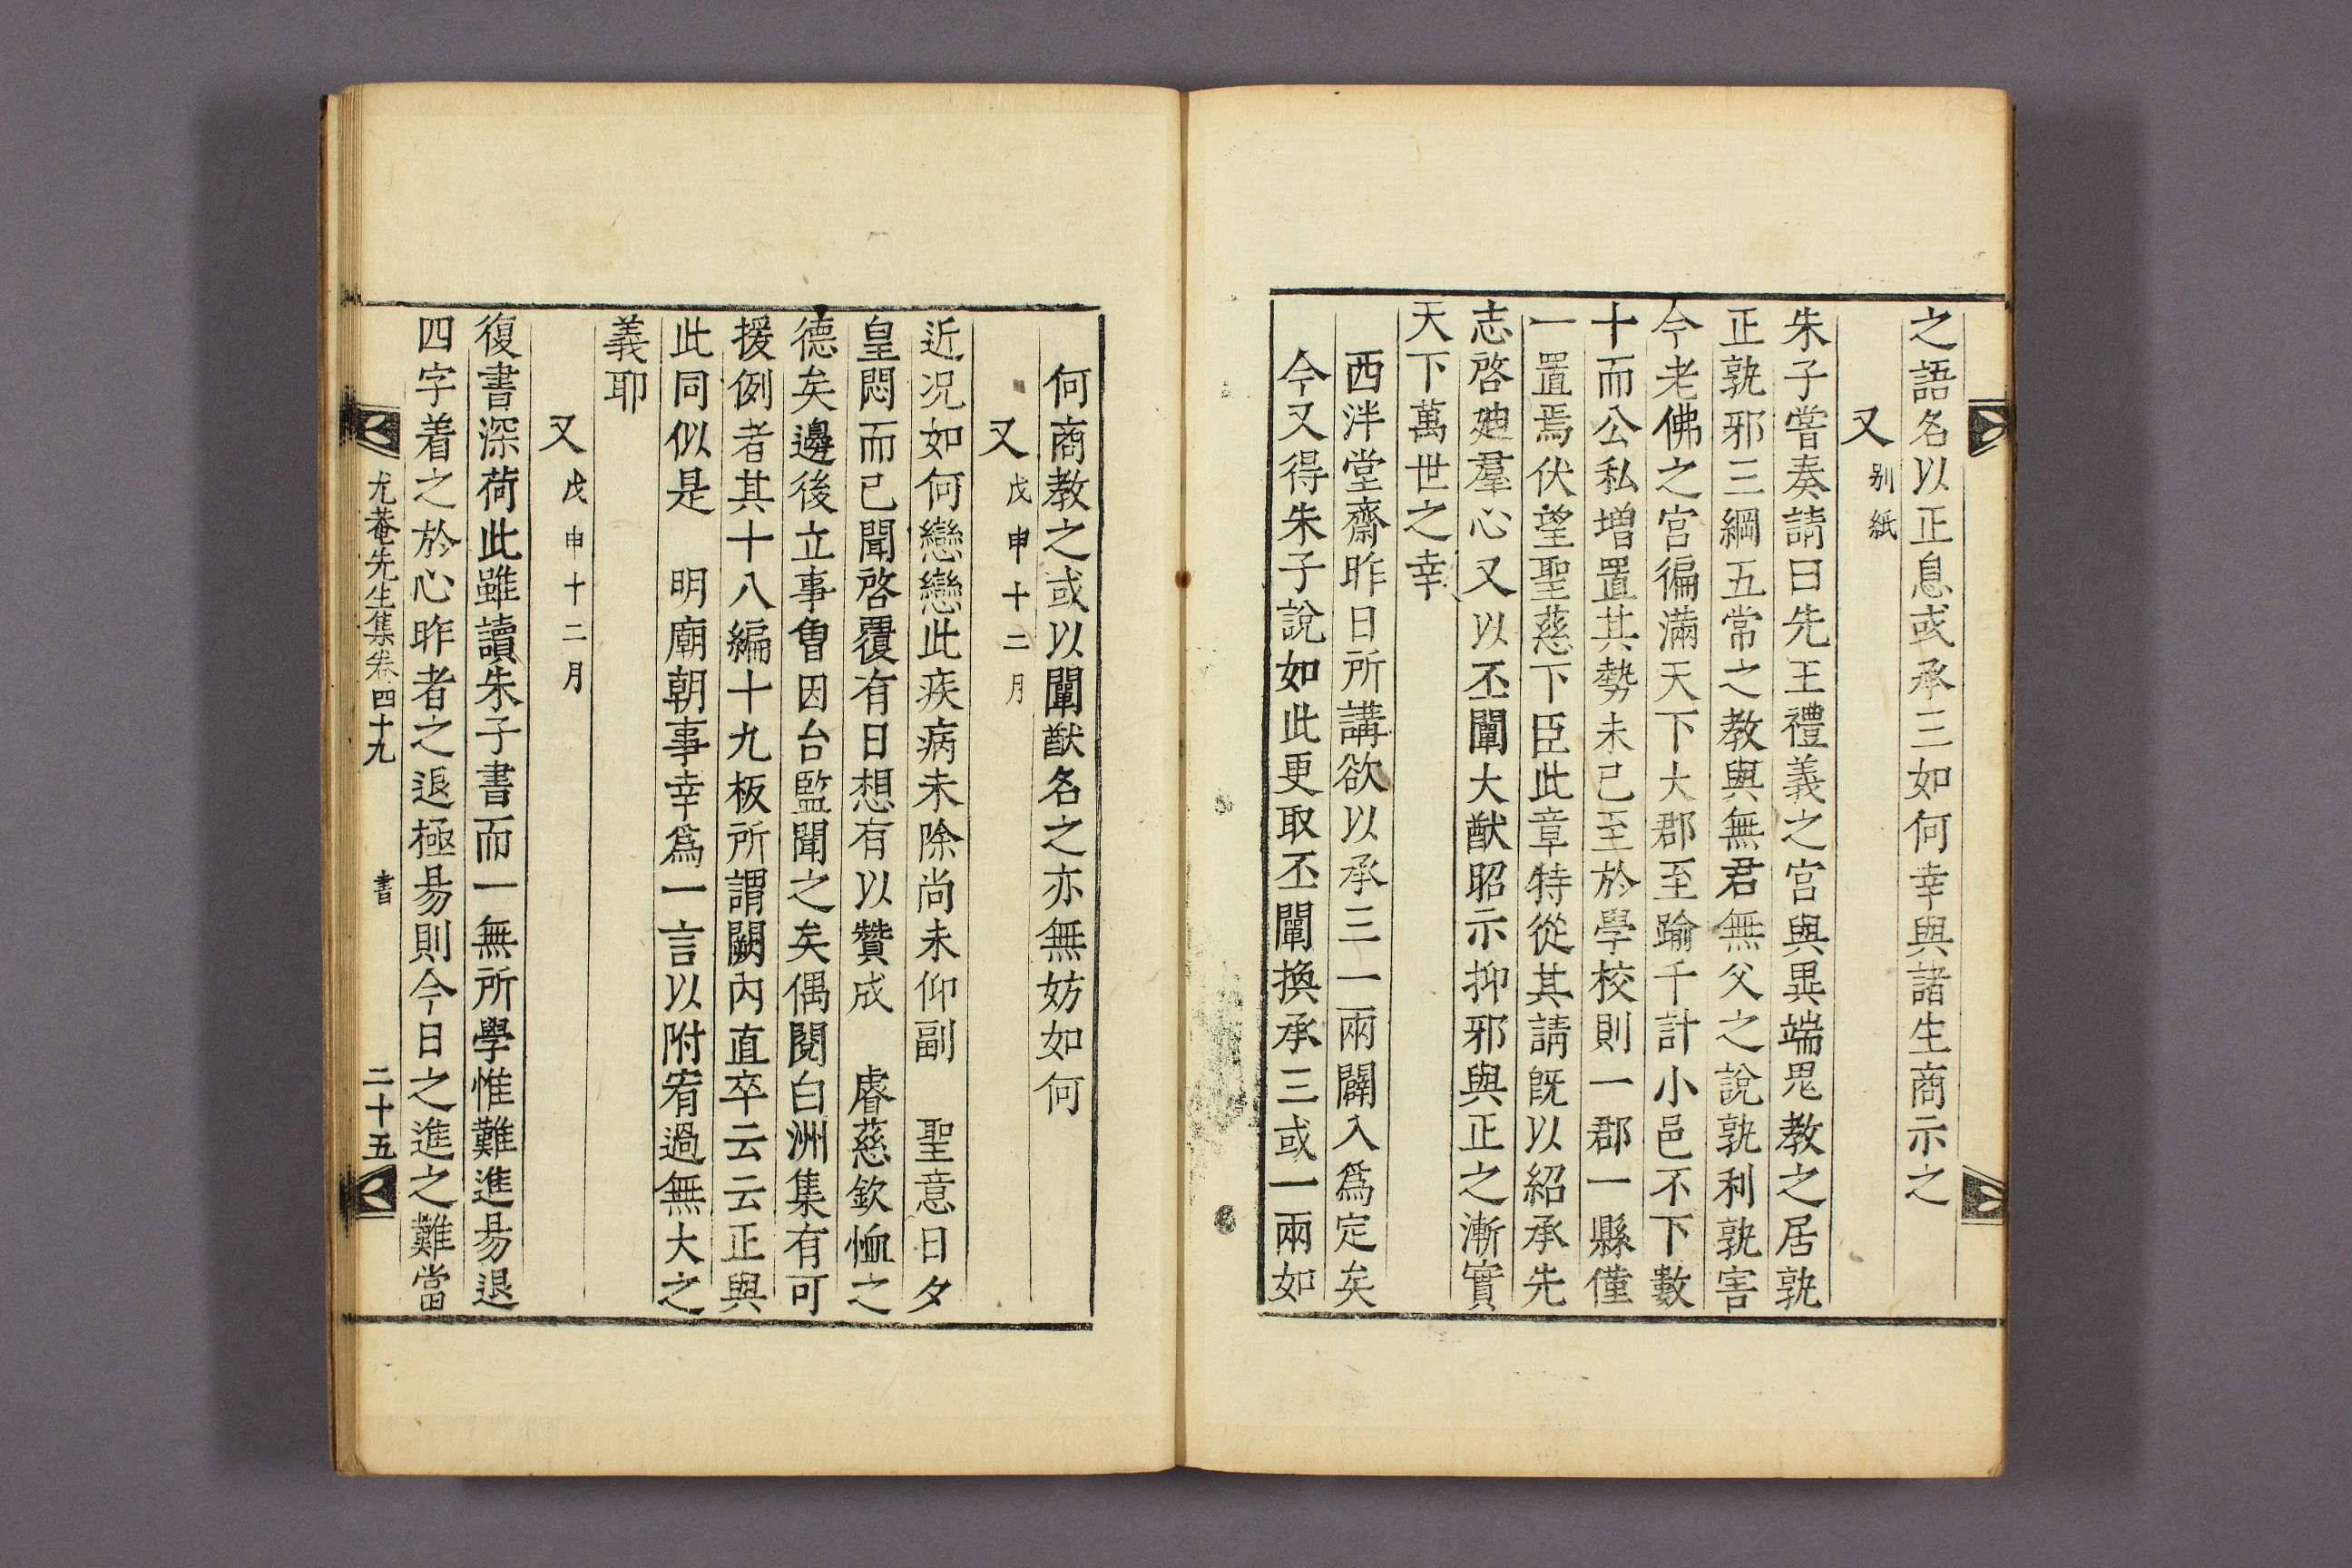 之語名以正息或承三如何幸與諸生商示之
又別紙
朱子嘗奏請曰先王禮義之宮與異端鬼教之居孰
正孰邪三綱五常之教與無君無父之說孰利孰害
今老佛之宮徧滿天下大郡至踰千計小邑不下數
十而公私增置其勢未已至於學校則一郡一縣僅
一置焉伏望聖慈下臣此章特從其請旣以紹承先
志啓廸羣心又以丕闡大猷昭示抑邪與正之漸實
天下萬世之幸
西泮堂齋昨日所講欲以承三一兩闢入爲定矣
今又得朱子說如此更取丕闡換承三或一兩如
何商教之或以闡猷名之亦無妨如何
又戊申十二月
近况如何戀戀此疾病未除尚未仰副聖意日夕
皇悶而已聞啓覆有日想有以贊成睿慈欽恤之
德矣邊後立事曾因台監聞之矣偶閱白洲集有可
援例者其十八編十九板所謂闕內直卒云云正與
此同似是明廟朝事幸爲一言以附宥過無大之
義耶
又戊申十二月
復書深荷此雖讀朱子書而一無所學惟難進易退
四字着之於心昨者之退極易則今日之進之難當
尤菴先生集卷四十九 書 二十五